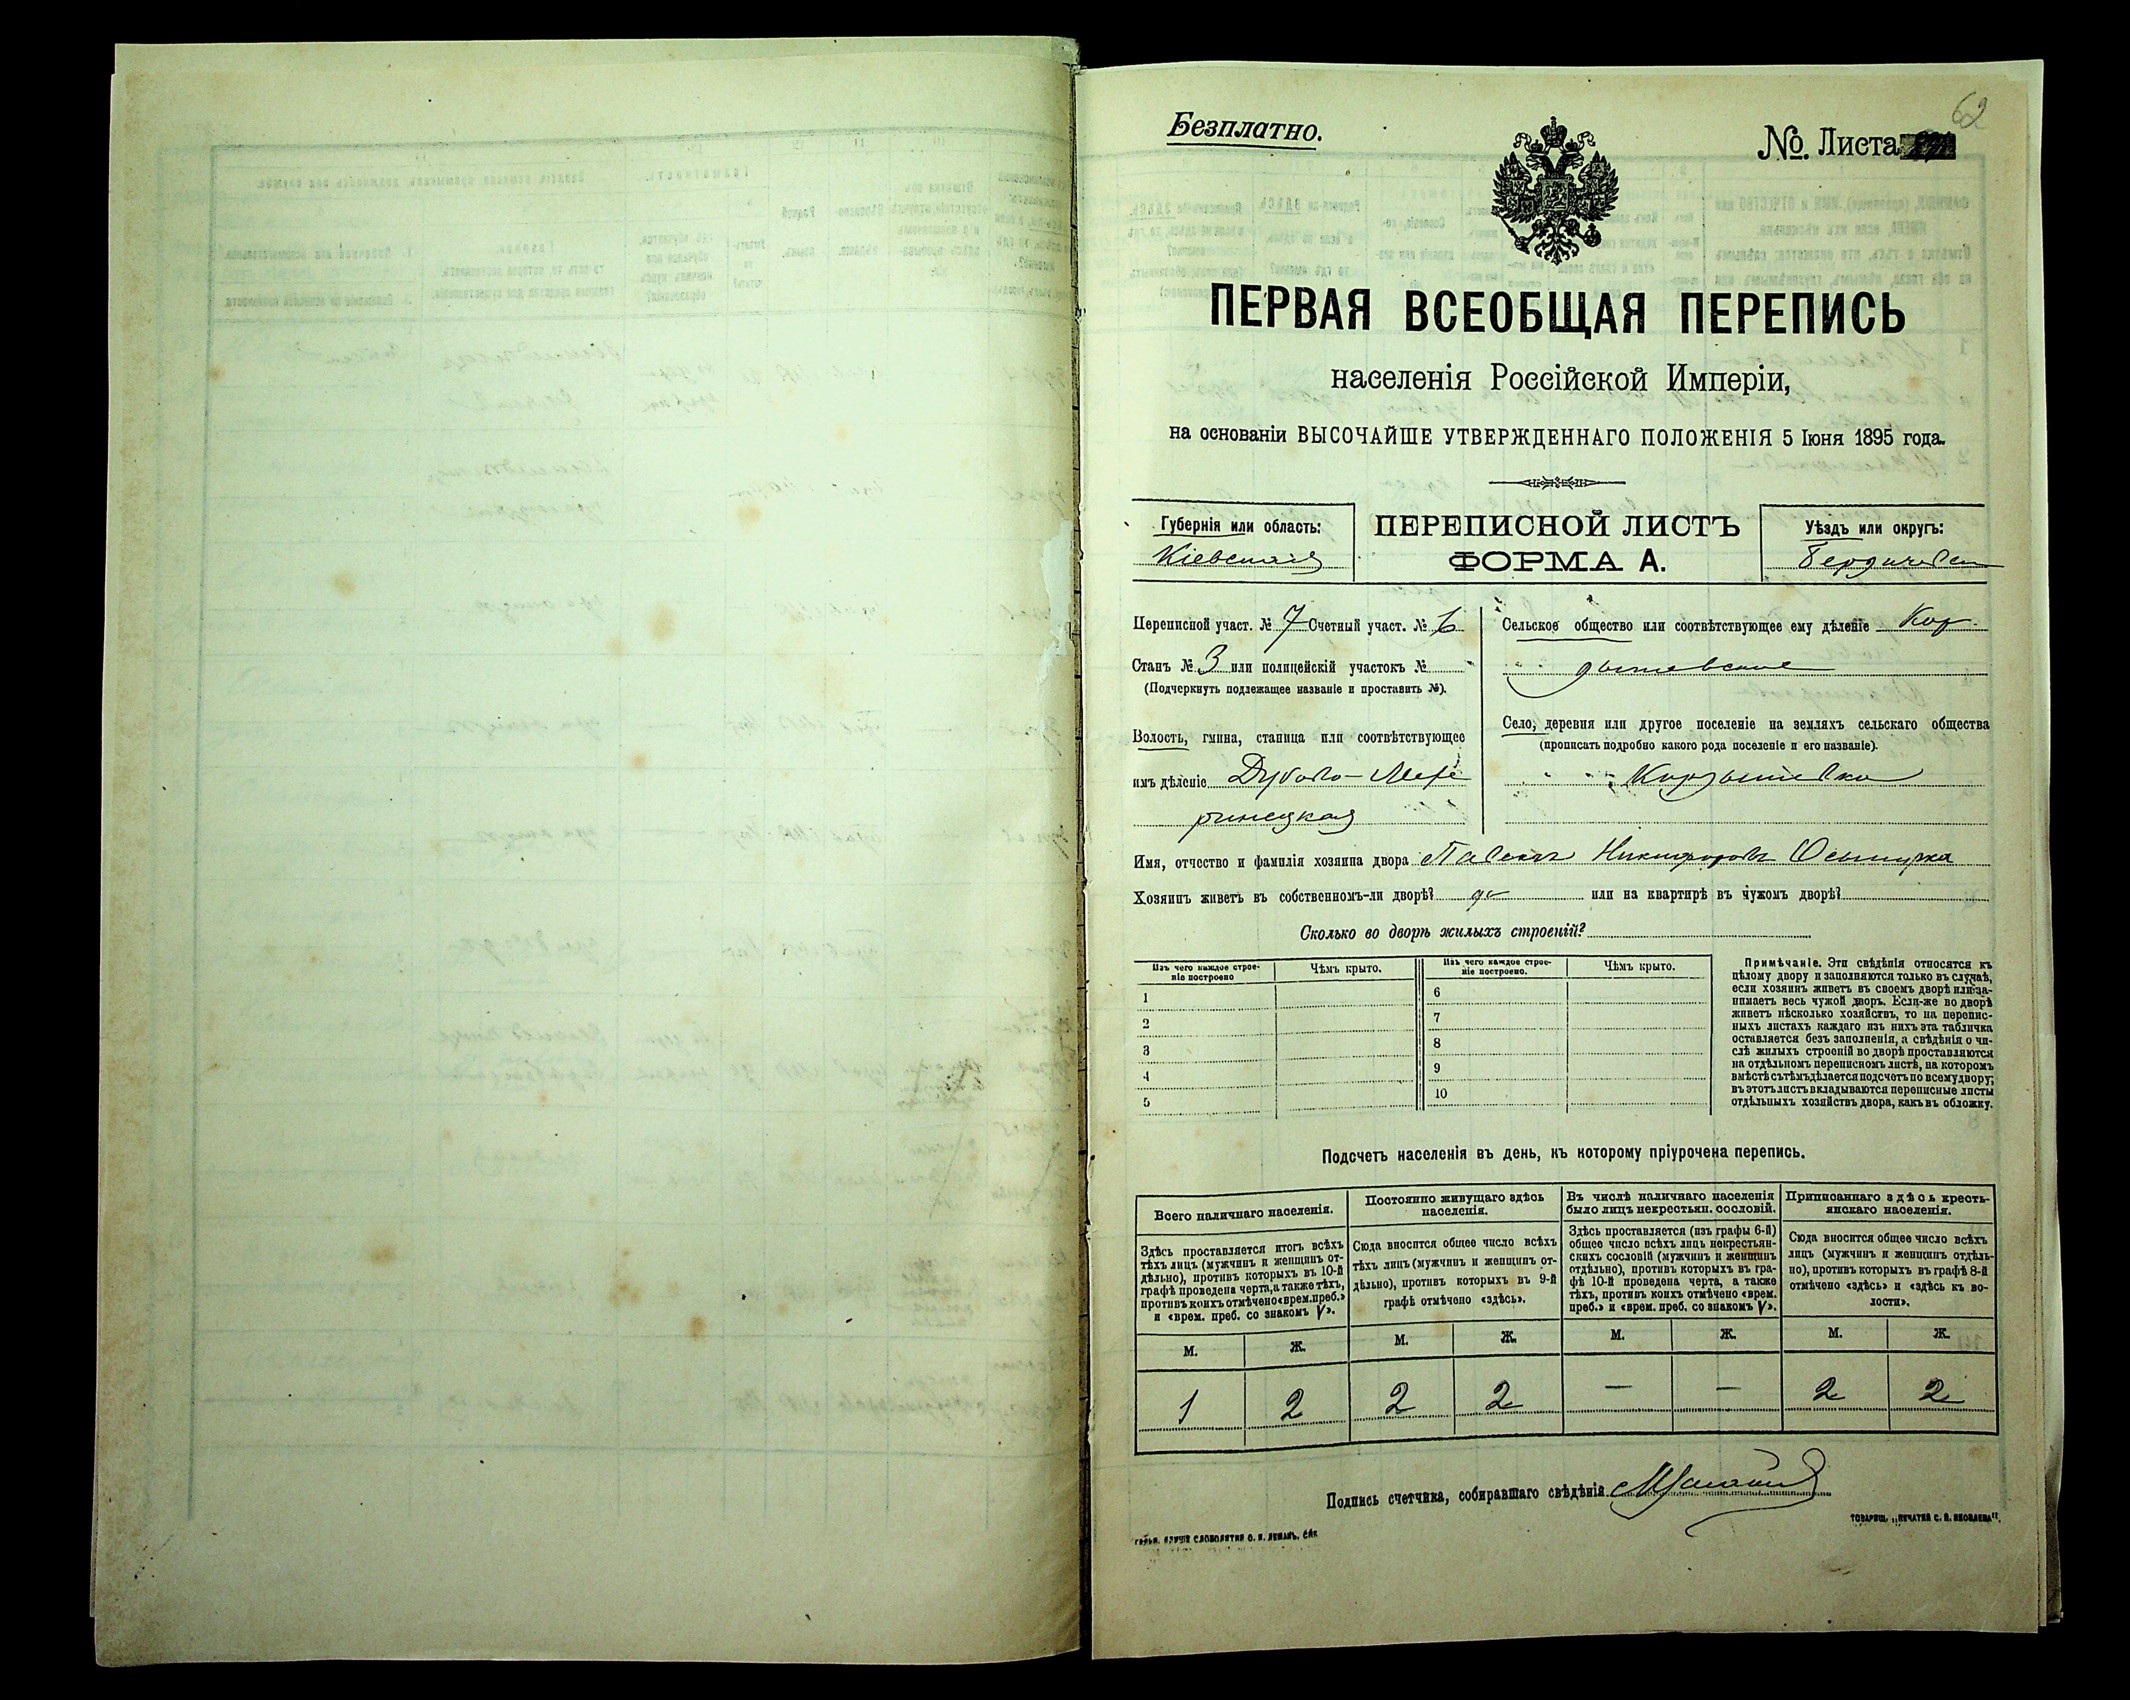 62
Безплатно.
№. Листа
ПЕРВАЯ ВСЕОБЩАЯ ПЕРЕПИСЬ
населенія Россійской Имперіи,
на основаніи ВЫСОЧАЙШЕ УТВЕРЖДЕННАГО ПОЛОЖЕНІЯ 5 Іюня 1895 года.
Губернія или область:
Кіевская
ПЕРЕПИСНОЙ ЛИСТЪ
ФОРМА А.
Уѣздъ или округъ:
Бердичевск
Переписной участ. № 7 Счетный участ. № 6
Станъ № 3 или полицейскій участокъ №
(Подчеркнуть подлежащее названіе и проставить №).
Волость, гмина, станица или соотвѣтствующее
имъ дѣленіе Дубово-Мехе
ринецкая
Сельское общество или соотвѣтствующее ему дѣленіе Кор
дышевское
Село, деревня или другое поселеніе на земляхъ сельскаго общества
(прописать подробно какого рода поселеніе и его названіе).
Кордышевка
Имя, отчество и фамилія хозяина двора Павелъ Никифоровъ
Хозяинъ живетъ въ собственномъ-ли дворѣ? да или на квартирѣ въ чужомъ дворѣ?
Сколько во дворѣ жилыхъ строеній?
Изъ чего каждое строе-
ніе построено
Чѣмъ крыто.
Изъ чего каждое строе-
ніе построено.
Чѣмъ крыто.
1
2
3
4
5
6
7
8
9
10
Примѣчаніе. Эти свѣдѣнія относятся къ
цѣлому двору и заполняются только въ случаѣ,
если хозяинъ живетъ въ своемъ дворѣ или за-
нимаетъ весь чужой дворъ. Если-же во дворѣ
живетъ нѣсколько хозяйствъ, то на перепис-
ныхъ листахъ каждаго изъ нихъ эта табличка
оставляется безъ заполненія, а свѣдѣнія о чи-
слѣ жилыхъ строеній во дворѣ проставляются
на отдѣльномъ переписномъ листѣ, на которомъ
вмѣстѣ съ тѣмъ дѣлается подсчетъ по всему двору;
въ этотъ листъ вкладываются переписные листы
отдѣльныхъ хозяйствъ двора, какъ въ обложку.
Подсчетъ населенія въ день, къ которому пріурочена перепись.
Всего наличнаго населенія.
Здѣсь проставляется итогъ всѣхъ
тѣхъ лицъ (мужчинъ и женщинъ от-
дѣльно), противъ которыхъ въ 10-й
графѣ проведена черта, а также тѣхъ,
противъ коихъ отмѣчено «врем. преб.»
и «врем. преб. со знакомъ V».
Постоянно живущаго здѣсь
населенія.
Сюда вносится общее число всѣхъ
тѣхъ лицъ (мужчинъ и женщинъ от-
дѣльно), противъ которыхъ въ 9-й
графѣ отмѣчено «здѣсь».
Въ числѣ наличнаго населенія
было лицъ некрестьян. сословій.
Здѣсь проставляется (изъ графы 6-й)
общее число всѣхъ лицъ некрестьян-
скихъ сословій (мужчинъ и женщинъ
отдѣльно), противъ которыхъ въ гра-
фѣ 10-й проведена черта, а также
тѣхъ, противъ коихъ отмѣчено «врем.
преб.» и «врем. преб. со знакомъ V».
Приписаннаго здѣсь кресть-
янскаго населенія.
Сюда вносится общее число всѣхъ
лицъ (мужчинъ и женщинъ отдѣль-
но), противъ которыхъ въ графѣ 8-й
отмѣчено «здѣсь» и «здѣсь въ во-
лости».
М. Ж. М. Ж. М. Ж. М. Ж.
1 2 2 2 — — 2 2
Подпись счетчика, собиравшаго свѣдѣнія
ТОВАРИЩ. „ПЕЧАТНЯ С. П. ЯКОВЛЕВА".
СЛОВОЛИТНИ О. И. ЛЕМАНЪ. СПБ